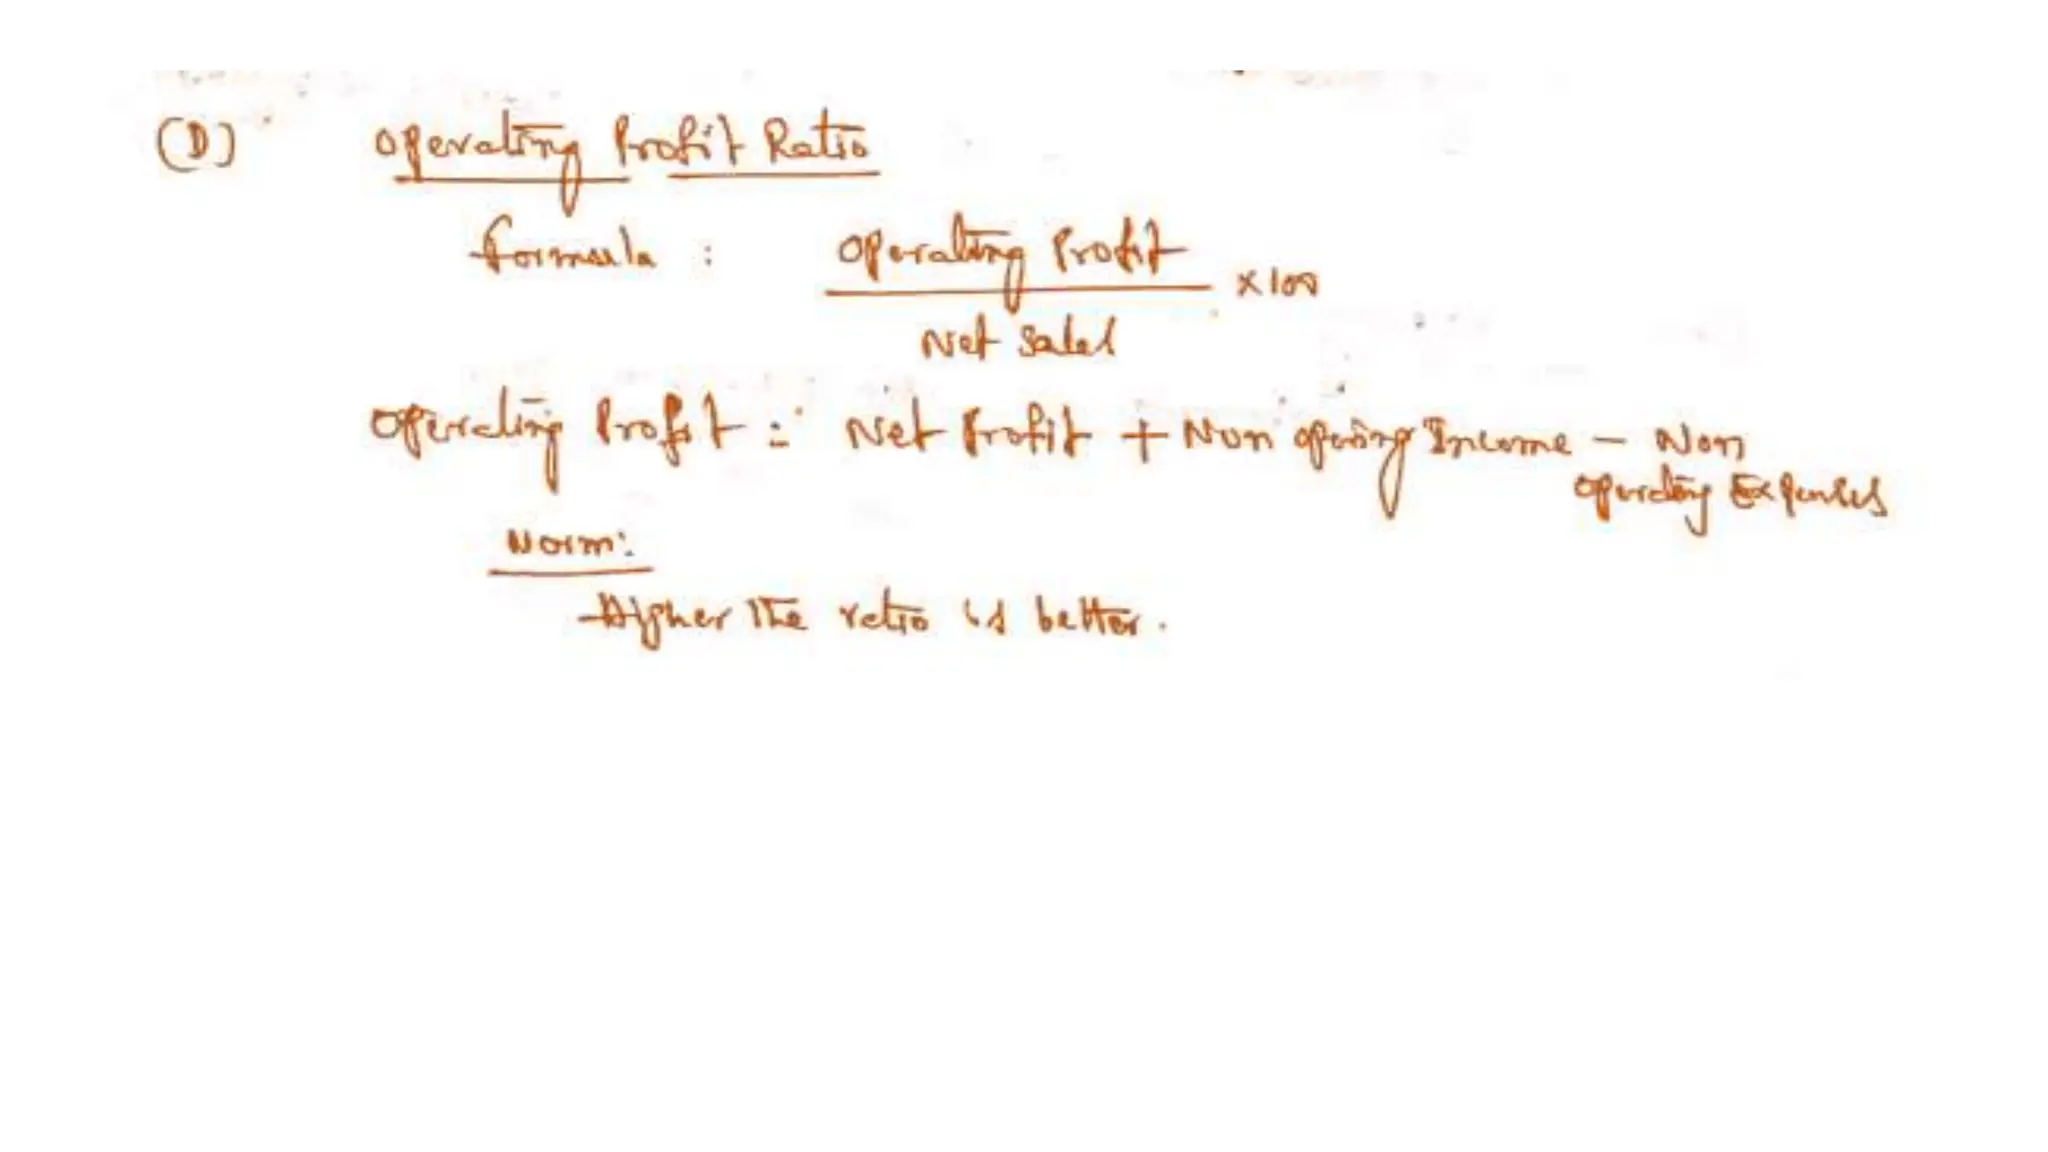 (D) Operating Profit Ratio
Formula : Operating Profit
x100
Net Sales
Operating Profit = Net Profit + Non opering Income - Non
operating Expenses
Norm:
Higher the ratio is better.